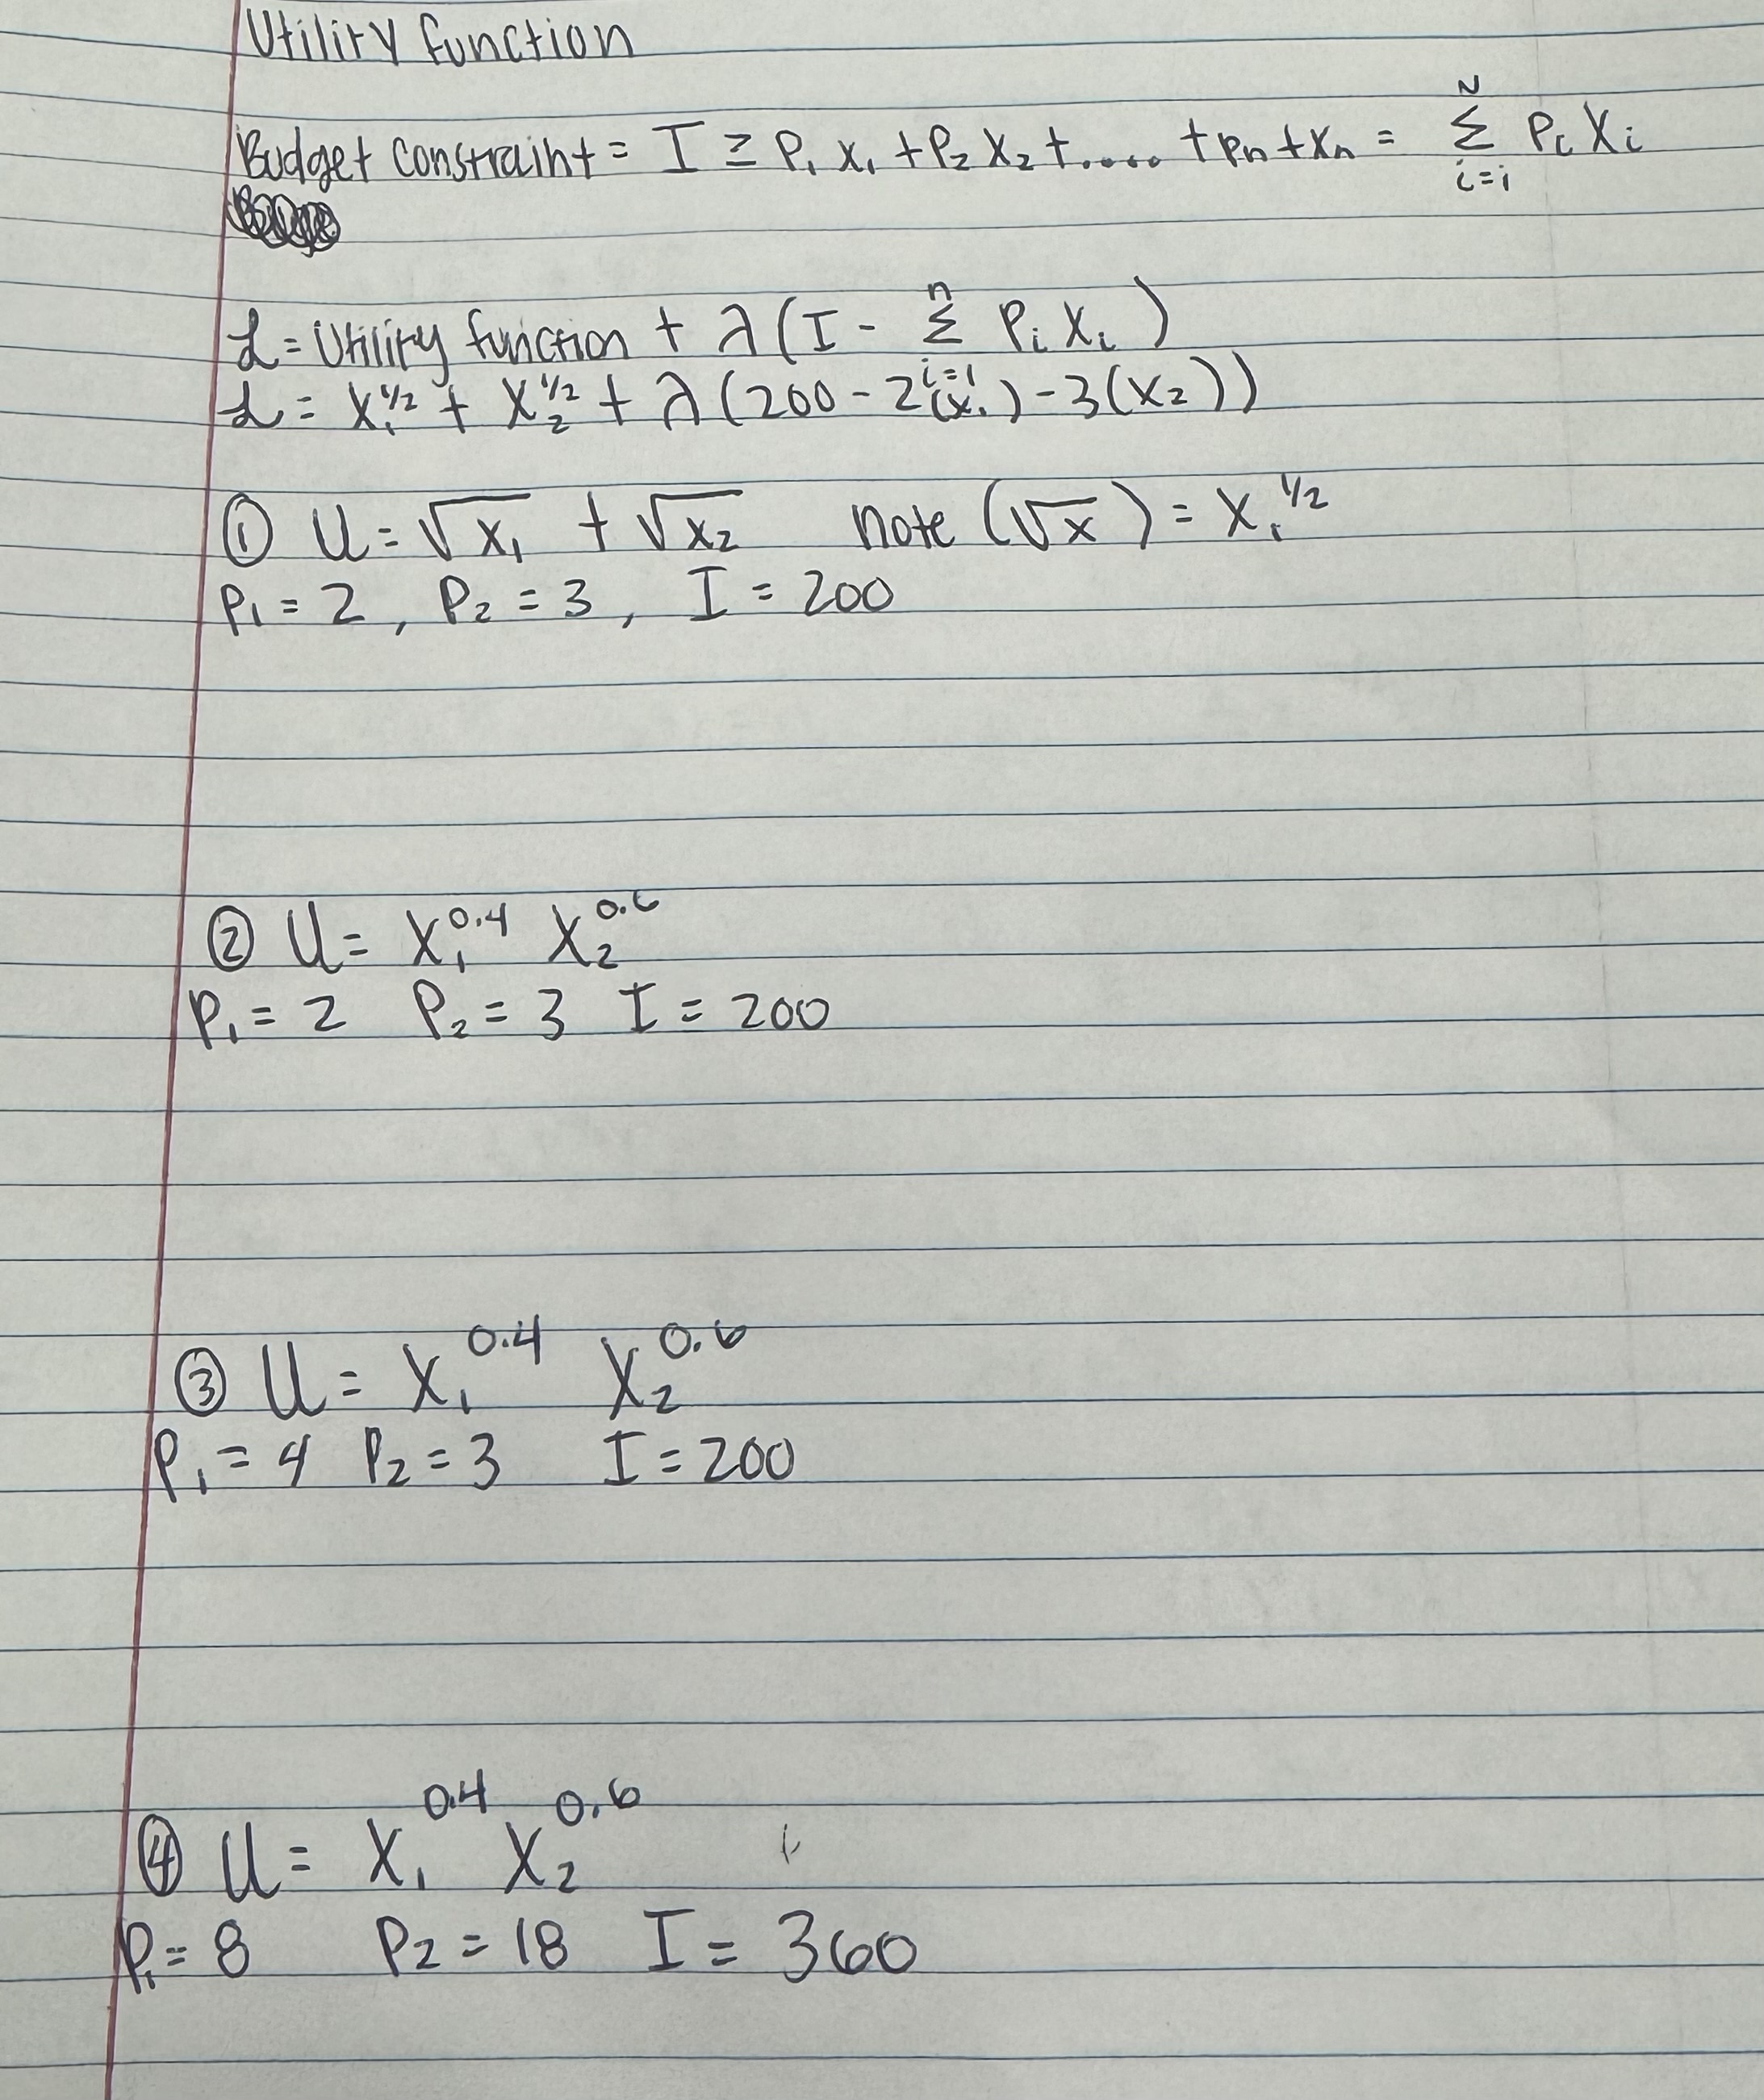 Utility function
Budget constraint = I ≥ P₁ X₁ + P₂ X₂ + ..... + pₙ + Xₙ = N Σ i=i Pᵢ Xᵢ
ℒ = Utility function + λ (I - n Σ i=1 Pᵢ Xᵢ)
ℒ = X₁^1/2 + X₂^1/2 + λ (200 - 2(x₁) - 3(X₂))
① U = √x₁ + √x₂ note (√x) = X₁^1/2
P₁ = 2, P₂ = 3, I = 200
② U = X₁^0.4 X₂^0.6
P₁ = 2 P₂ = 3 I = 200
③ U = X₁^0.4 X₂^0.6
P₁ = 4 P₂ = 3 I = 200
④ U = X₁^0.4 X₂^0.6
P₁ = 8 P₂ = 18 I = 360